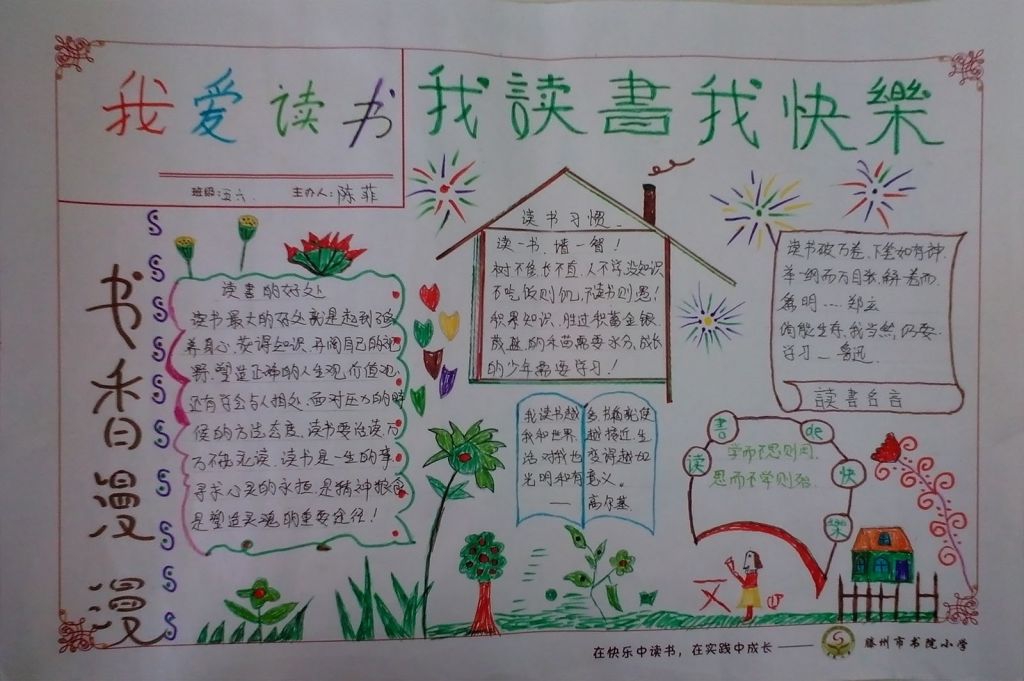 我爱读书
班级:五六. 主办人:陈菲
我読書我快樂
书香漫漫
读書的好处
读书最大的好处就是起到了涵
养身心,获得知识,开阔自己的视
野,塑造正确的人生观,价值观,
还有学会与人相处,面对压力的时
候的方法态度,读书要治读,万
万不能死读,读书是一生的事,
寻求心灵的永恒,是精神粮食
是塑造灵魂的重要途径!
读书习惯
读一书,增一智!
树不修长不直,人不学没知识
不吃饭则饥,不读书则愚!
积累知识,胜过积蓄金银
茂盛的禾苗需要水分,成长
的少年需要学习!
读书破万卷,下笔如有神.
举一纲而万目张,解一卷而
众篇明....郑玄
倘能生存,我当然仍要
学习——鲁迅
読書名言
我读书越多,书籍就使
我和世界越接近,生
活对我也变得越加
光明和有意义。
——高尔基
读書de快樂
学而不思则罔,
思而不学则殆.
在快乐中读书,在实践中成长——
滕州市书院小学